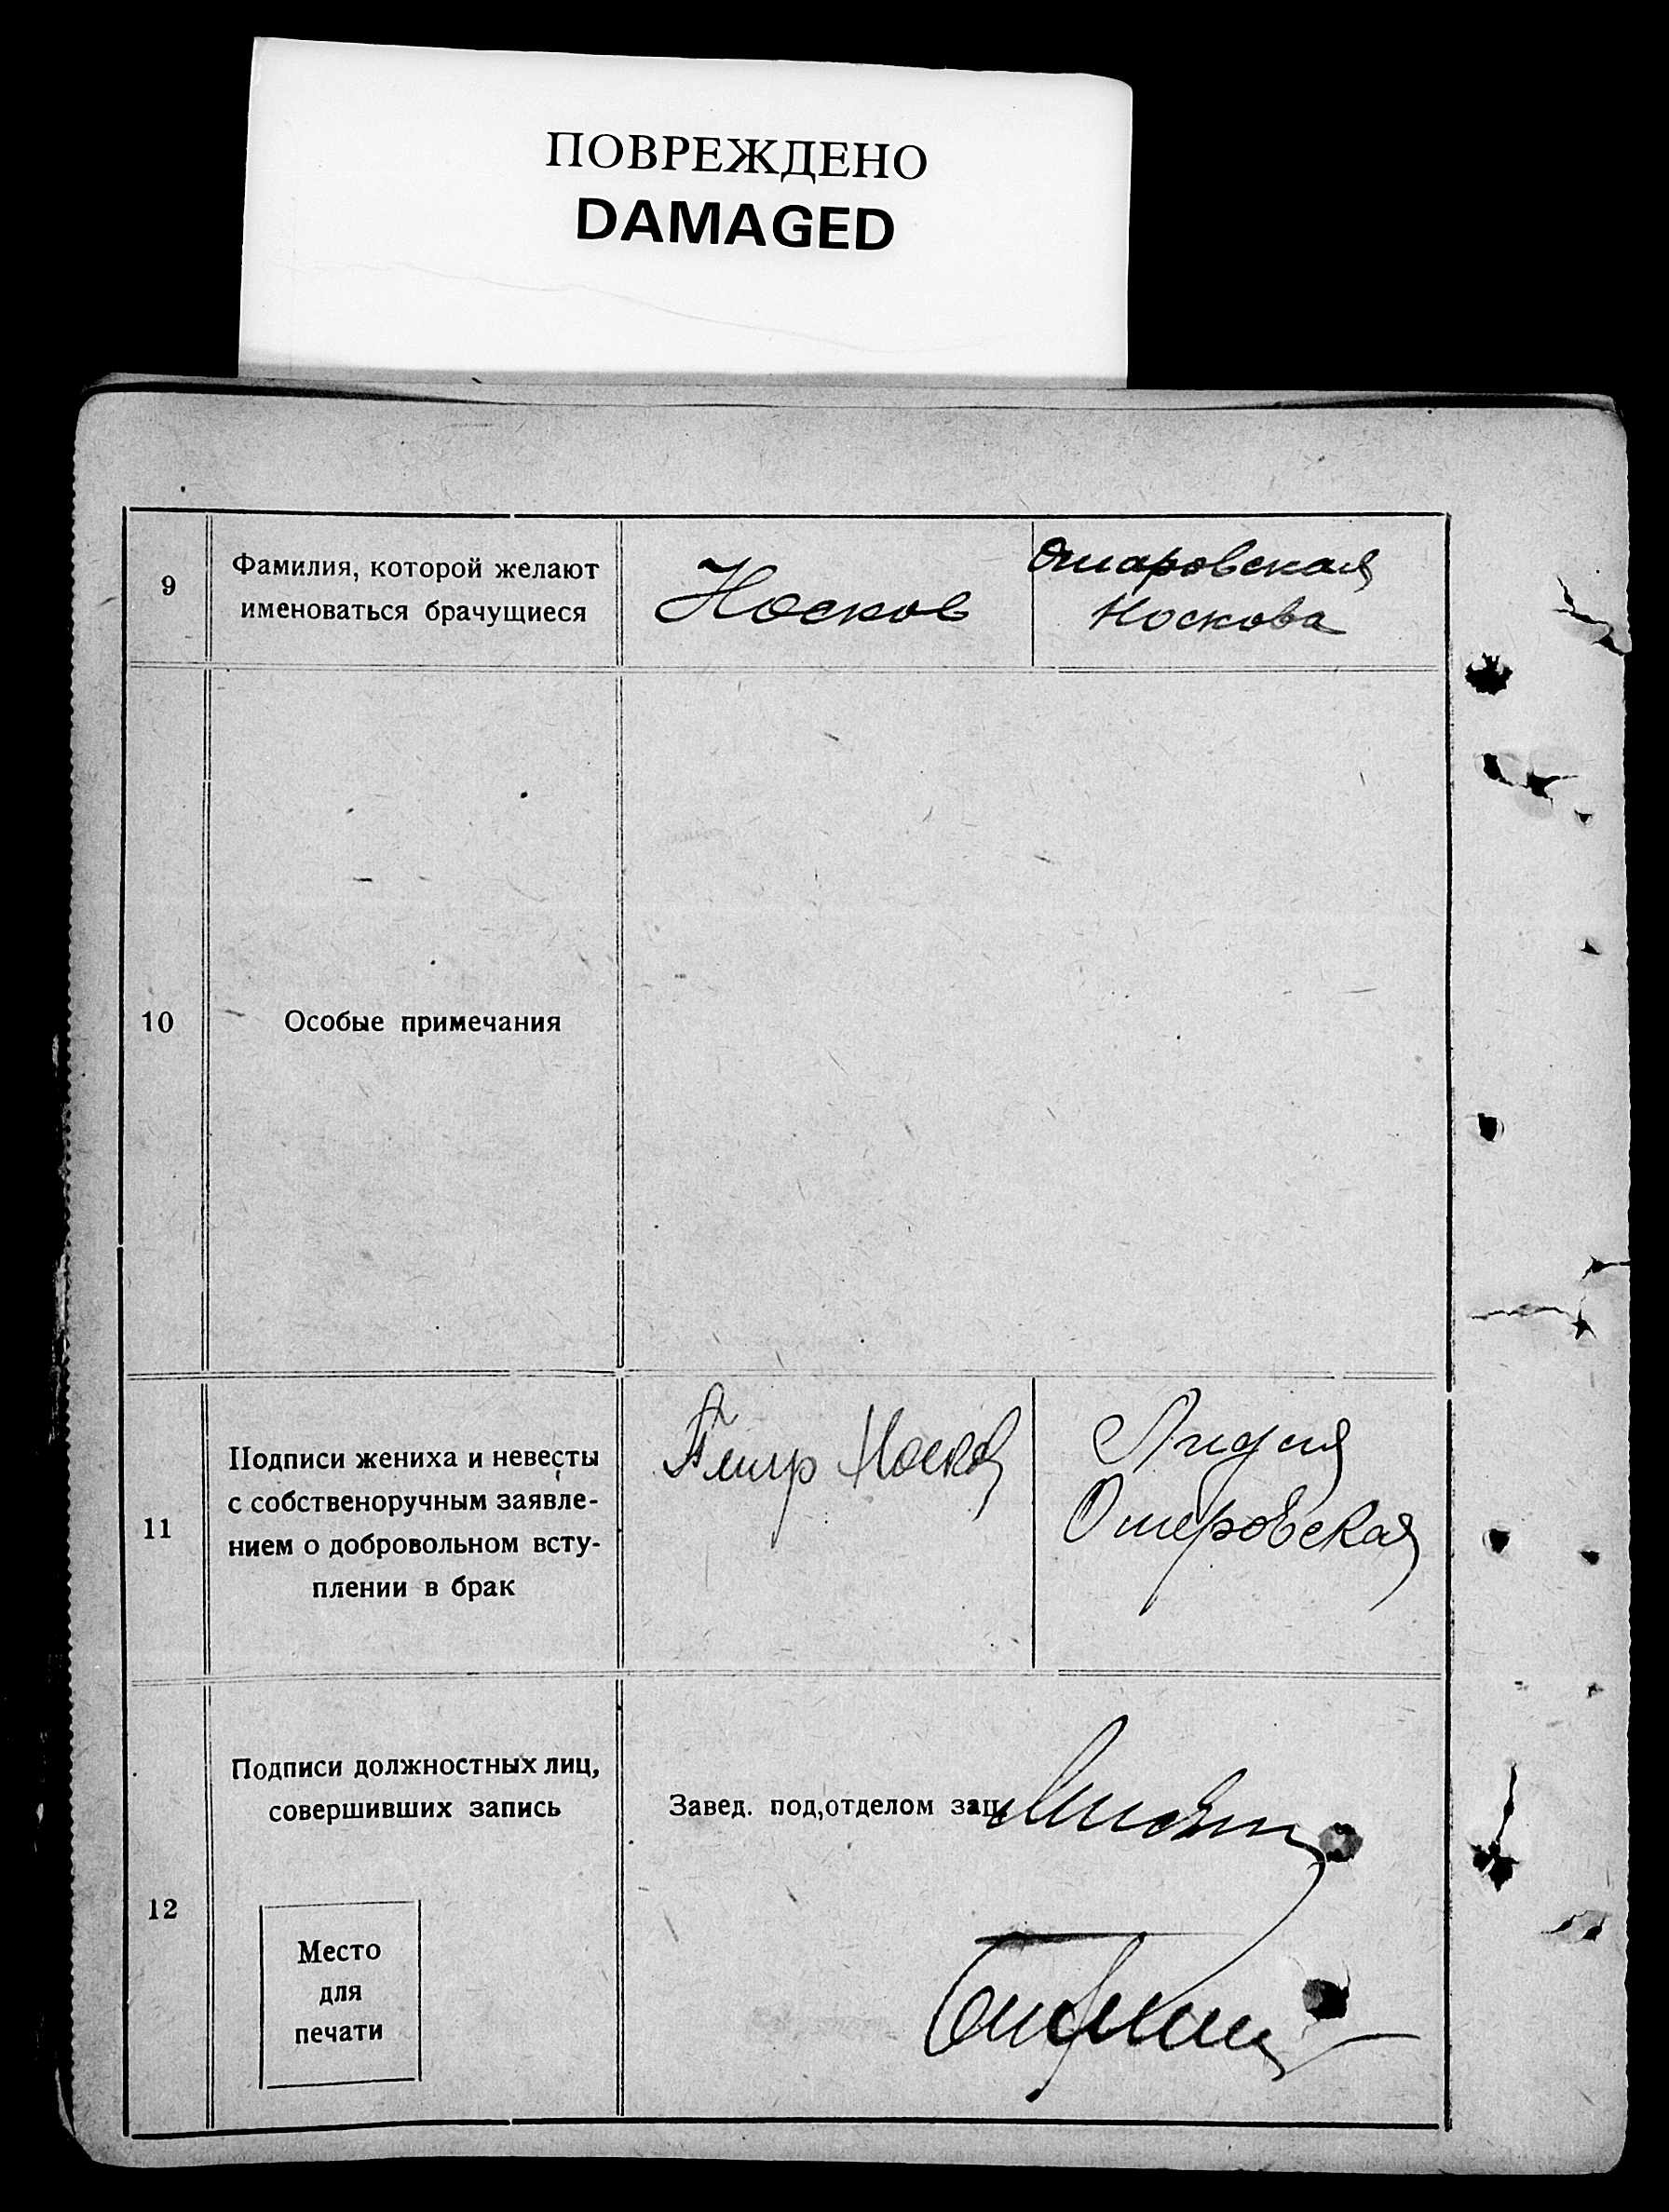 ПОВРЕЖДЕНО
DAMAGED
9
Фамилия, которой желают
именоваться брачущиеся
Носков
Омаровская
Носкова
10
Особые примечания
11
Подписи жениха и невесты
с собственоручным заявле-
нием о добровольном всту-
плении в брак
Носков
Лидия
12
Подписи должностных лиц,
совершивших запись
Завед. под,отделом
Место
для
печати